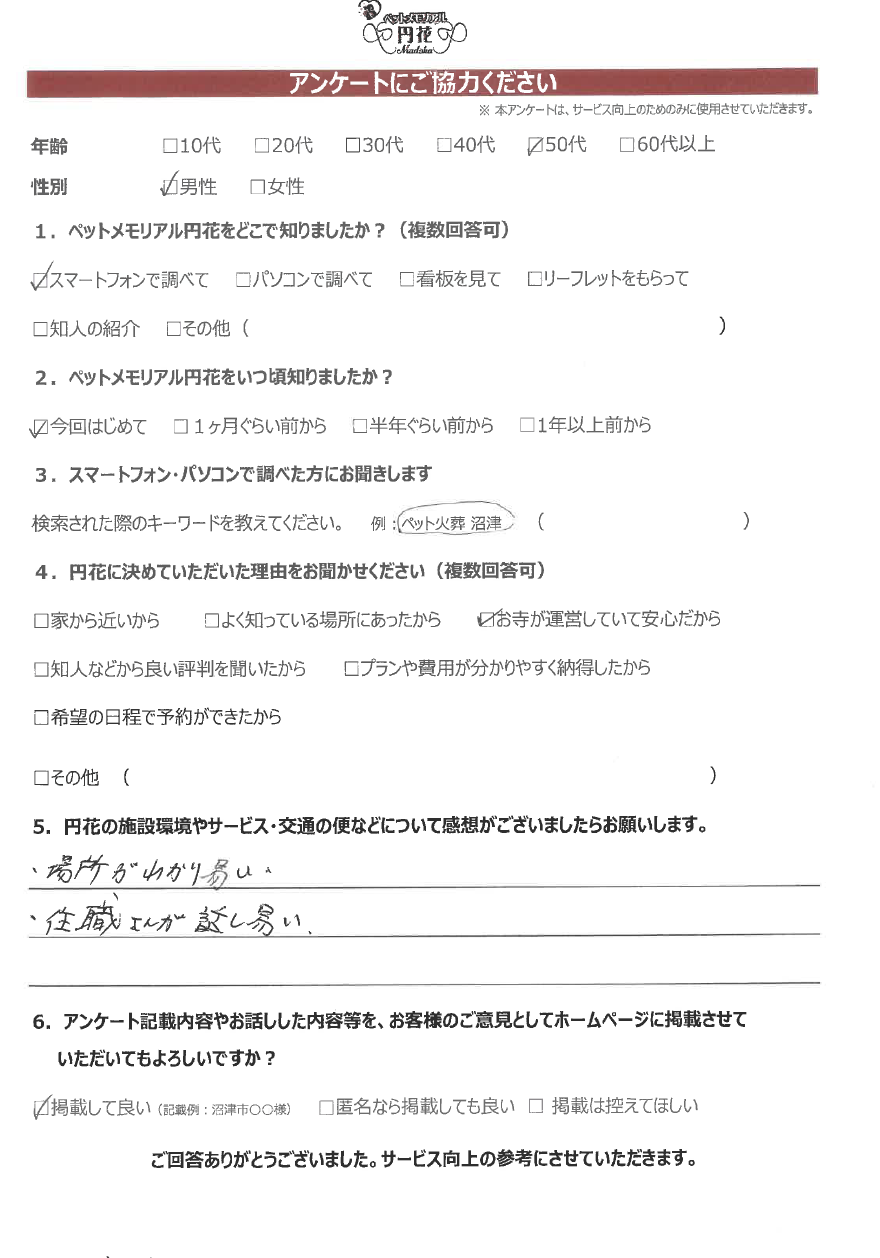 ペットメモリアル
円花
Madoka
アンケートにご協力ください
※ 本アンケートは、サービス向上のためのみに使用させていただきます。
年齢 □10代 □20代 □30代 □40代 ☑50代 □60代以上
性別 ☑男性 □女性
1．ペットメモリアル円花をどこで知りましたか？（複数回答可）
☑スマートフォンで調べて □パソコンで調べて □看板を見て □リーフレットをもらって
□知人の紹介 □その他（ ）
2．ペットメモリアル円花をいつ頃知りましたか？
☑今回はじめて □１ヶ月ぐらい前から □半年ぐらい前から □1年以上前から
3．スマートフォン・パソコンで調べた方にお聞きします
検索された際のキーワードを教えてください。 例：ペット火葬 沼津 （ ）
4．円花に決めていただいた理由をお聞かせください（複数回答可）
□家から近いから □よく知っている場所にあったから ☑お寺が運営していて安心だから
□知人などから良い評判を聞いたから □プランや費用が分かりやすく納得したから
□希望の日程で予約ができたから
□その他 （ ）
5．円花の施設環境やサービス・交通の便などについて感想がございましたらお願いします。
・場所がわかり易い、
・住職さんが話し易い、
6．アンケート記載内容やお話しした内容等を、お客様のご意見としてホームページに掲載させて
いただいてもよろしいですか？
☑掲載して良い（記載例：沼津市〇〇様） □匿名なら掲載しても良い □ 掲載は控えてほしい
ご回答ありがとうございました。サービス向上の参考にさせていただきます。